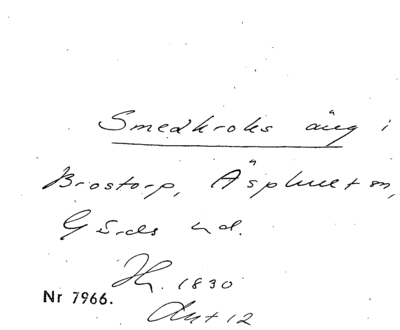 Smedkroks äng i
Brostorp, Äsphult sn,
Gärds hd.
Jh. 1830
Nr 7966.
Akt 12